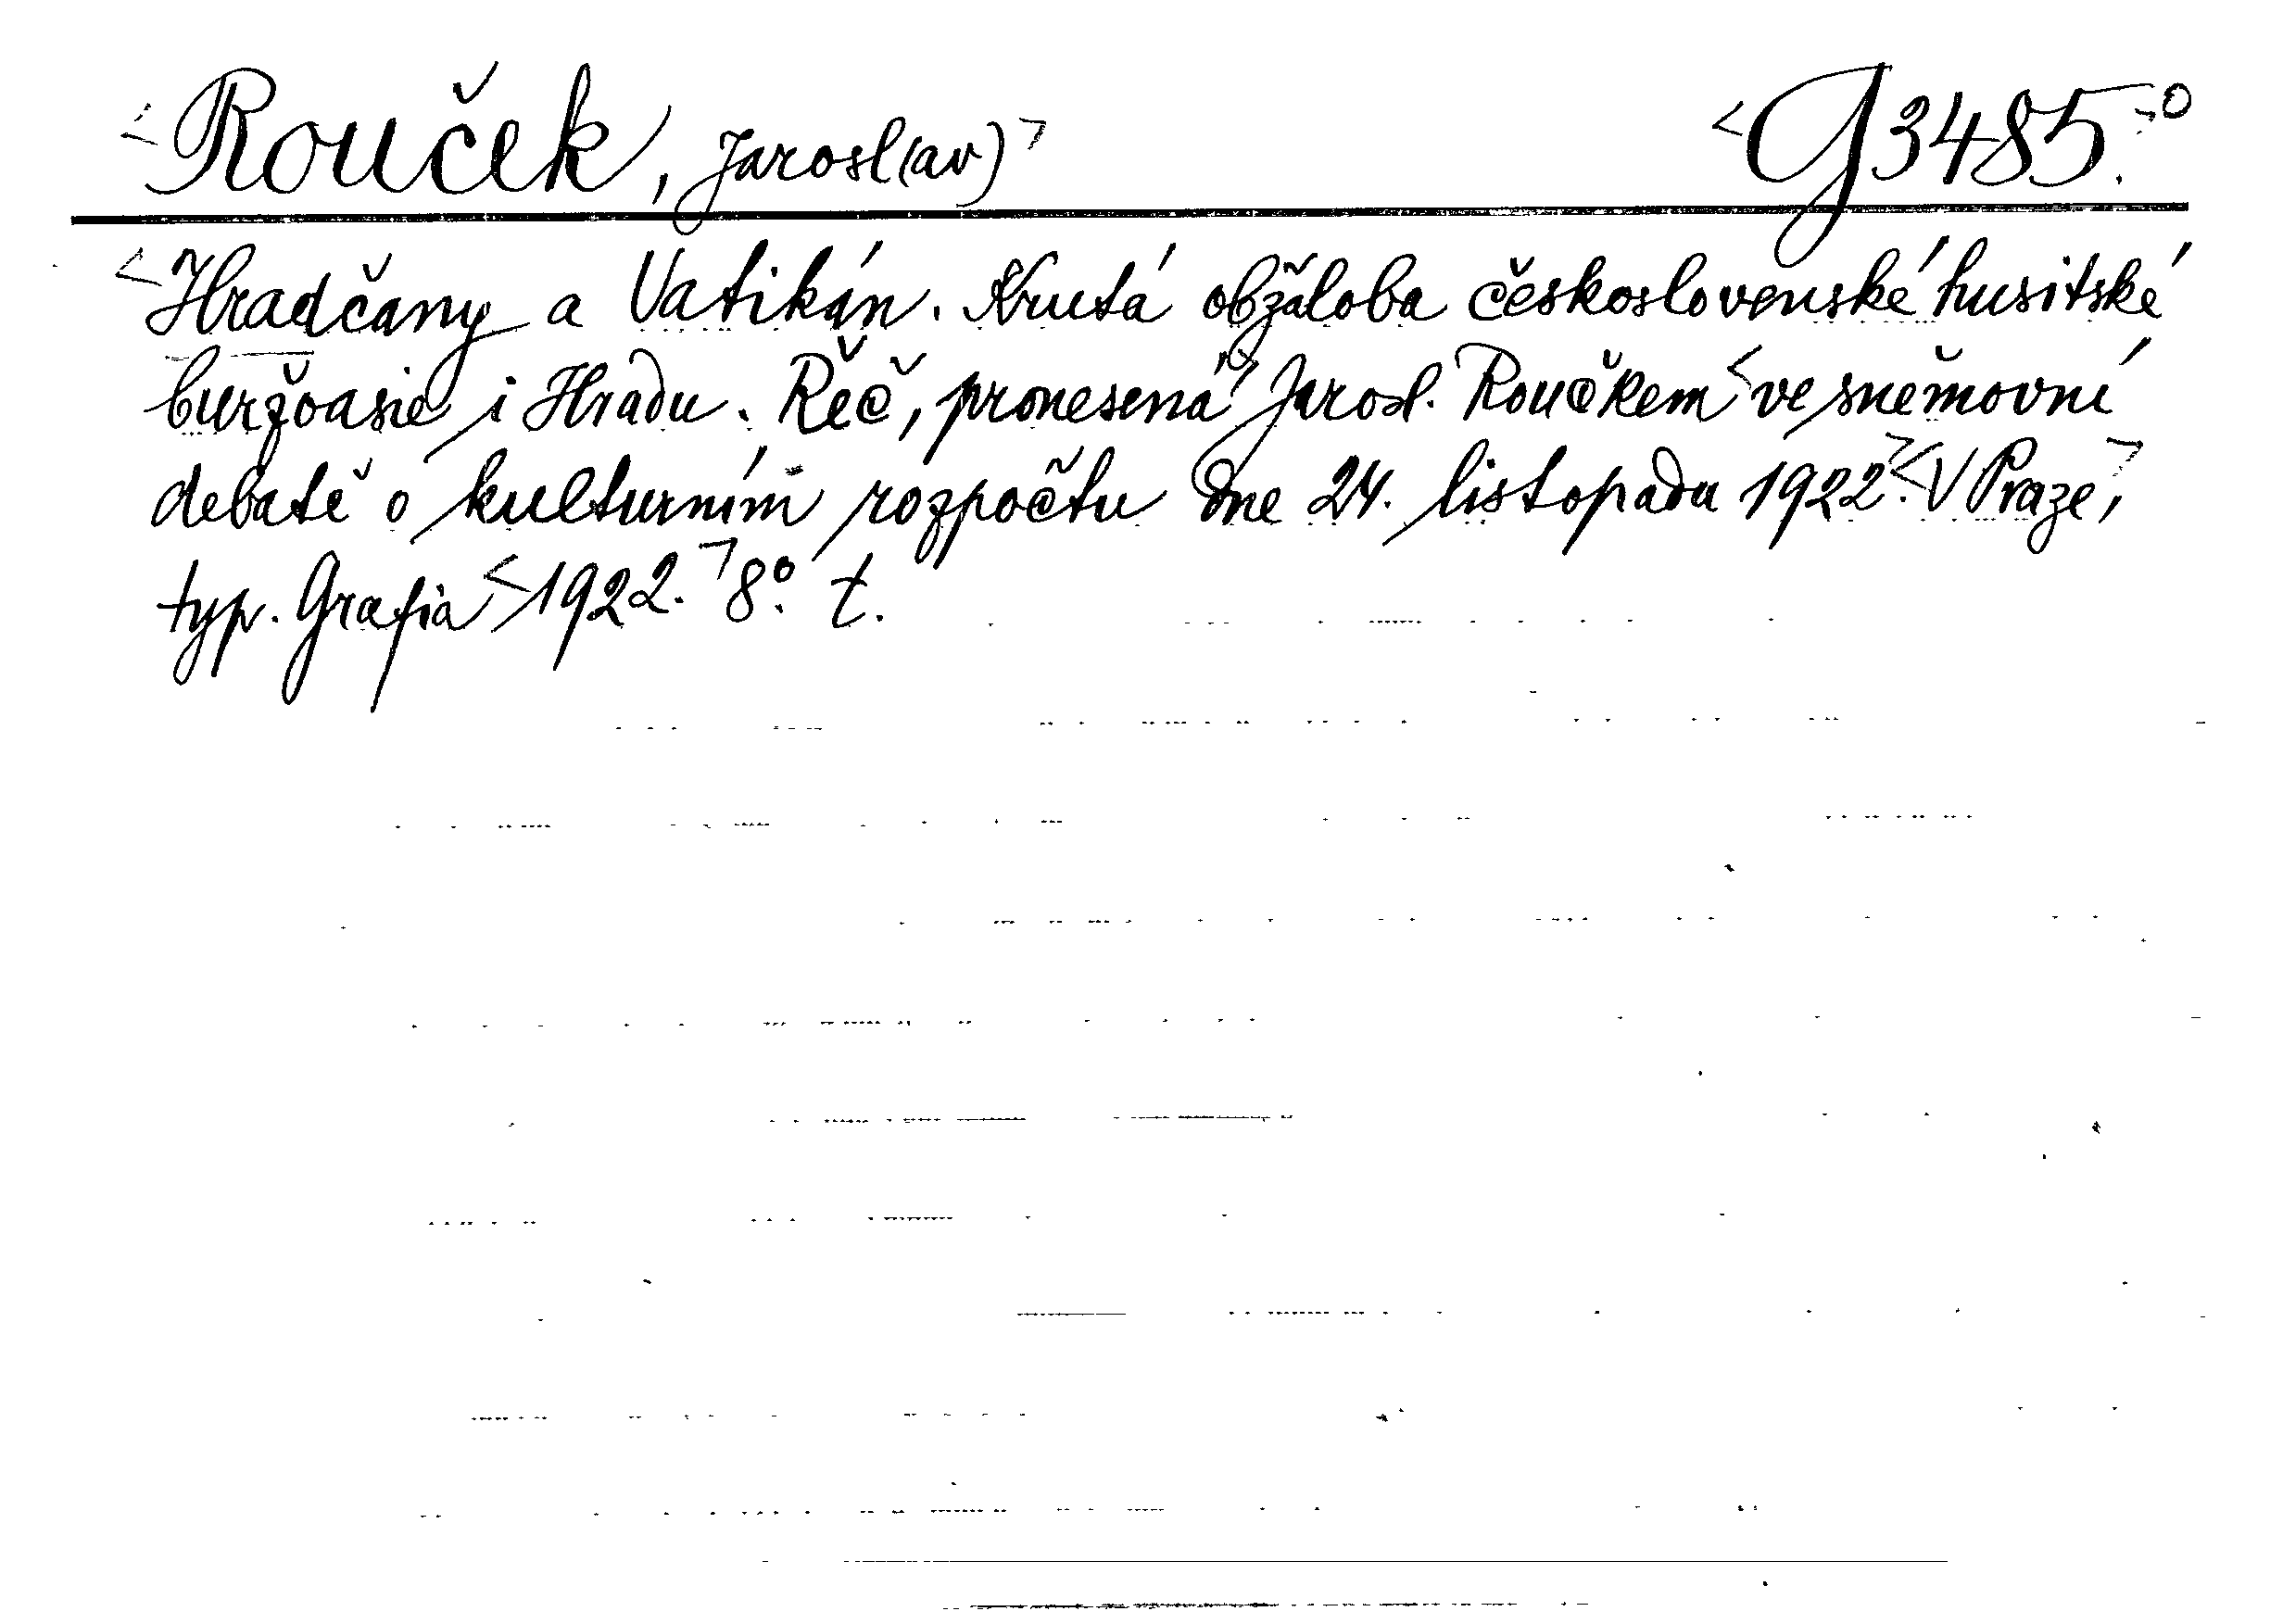 <Rouček, Jarosl(av)> <G 3485.>°
<Hradčany a Vatikán. Krutá obžaloba československé husitské
buržoasie i Hradu. Řeč, pronesená> Jarosl. Roučkem <ve sněmovní
debatě o kulturním rozpočtu dne 24. listopadu 1922>. <V Praze,>
typ. Grafia <1922.> 8°. t.